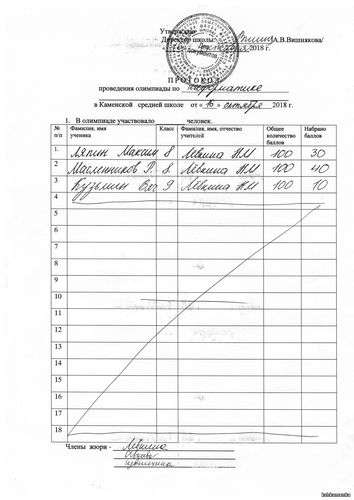 Утверждаю
Директор школы: /А.В.Вишнякова/
2018 г.
ДОКУМЕНТОВ
ПРОТОКОЛ
проведения олимпиады по информатике
в Каменской средней школе от « 16 » октября 2018 г.
1. В олимпиаде участвовало человек.
№ п/п Фамилия, имя ученика Класс Фамилия, имя, отчество учителей Общее количество баллов Набрано баллов
1. Ляпин Максим 8 Лёвкина НМ 100 30
2 Масленников Р. 8 Лёвкина НМ 100 40
3 Кузьмин 9 Лёвкина НМ 100 10
4
5
6
7
8
9
10
11
12
13
14
15
16
17
18
Члены жюри -